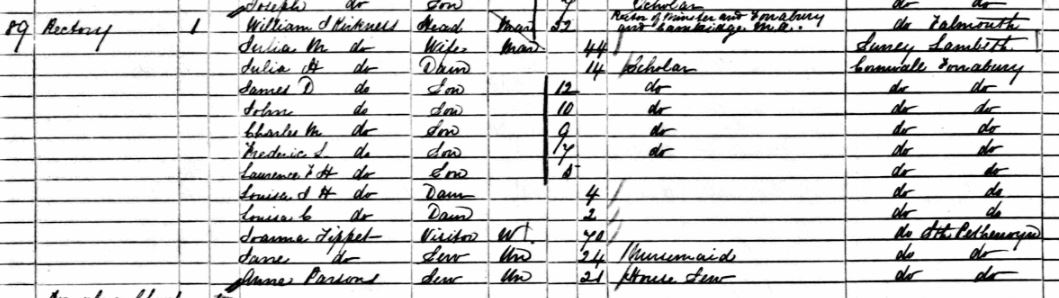 Joseph do Son 7 Scholar do do
89 Rectory 1 William S Kirkness Head Mar 52 Rector of Minster and Forrabury and Cambridge M.A. do Falmouth
Julia M do Wife Mar 44 Surrey Lambeth
Julia H do Daur 14 Scholar Cornwall Forrabury
James D do Son 12 do do do
John do Son 10 do do do
Charles M do Son 9 do do do
Frederic L do Son 7 do do do
Laurence F H do Son 5 do do
Louisa S H do Daur 4 do do
Louisa C do Daur 2 do do
Joanna Tippet Visitor W 70 do Sth Petherwyn
Jane do Serv Un 24 Nursemaid do do
Anne Parsons Serv Un 21 House Serv do do